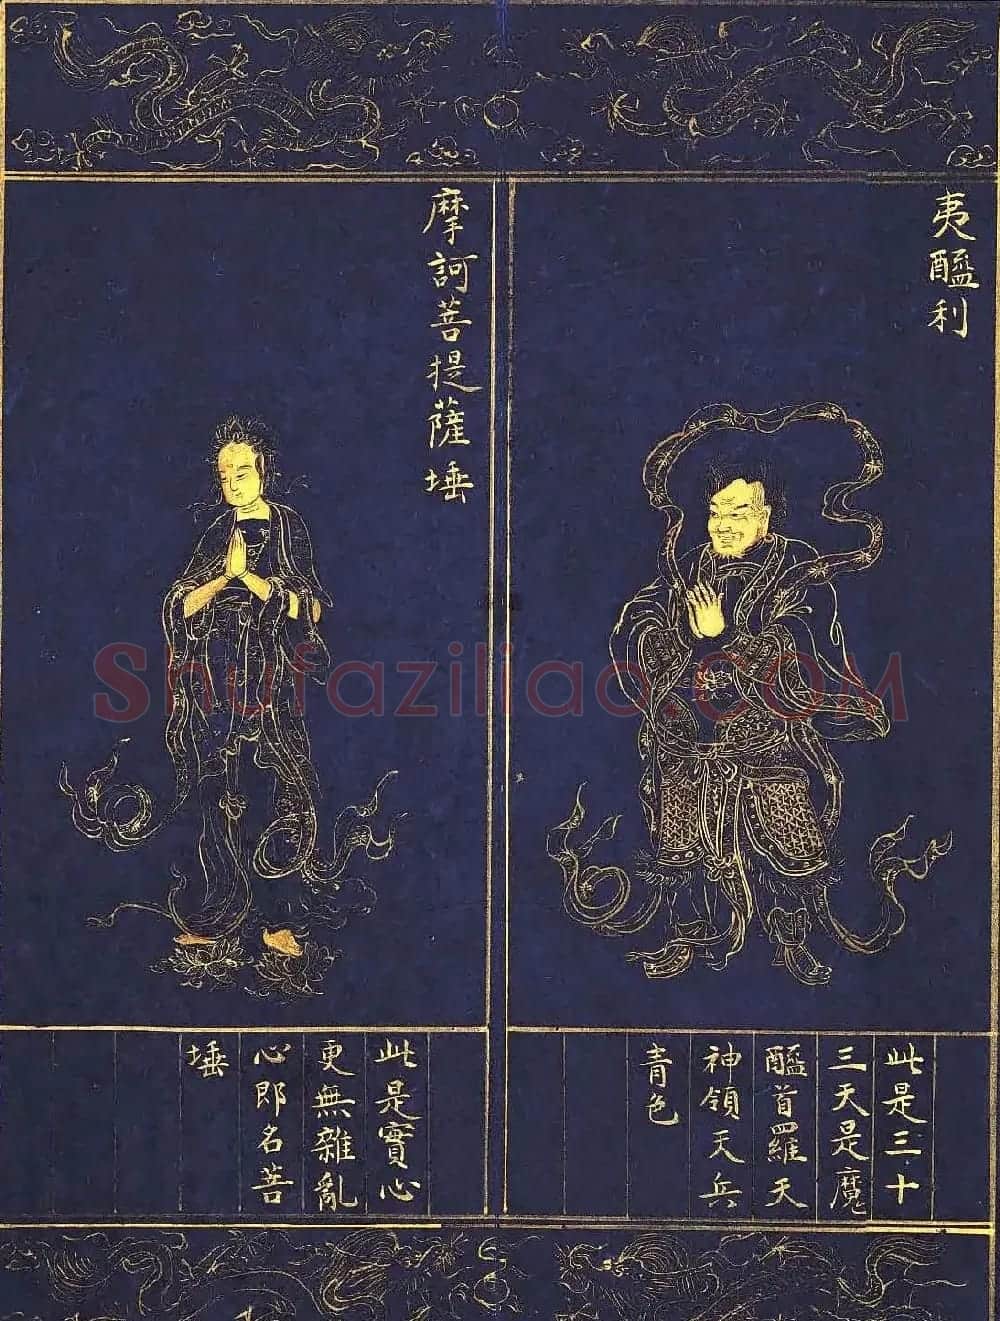 夷醯利
此是三十
三天是魔
醯首羅天
神領天兵
青色
摩訶菩提薩埵
此是實心
更無雜亂
心即名菩
埵
Shufaziliao.COM